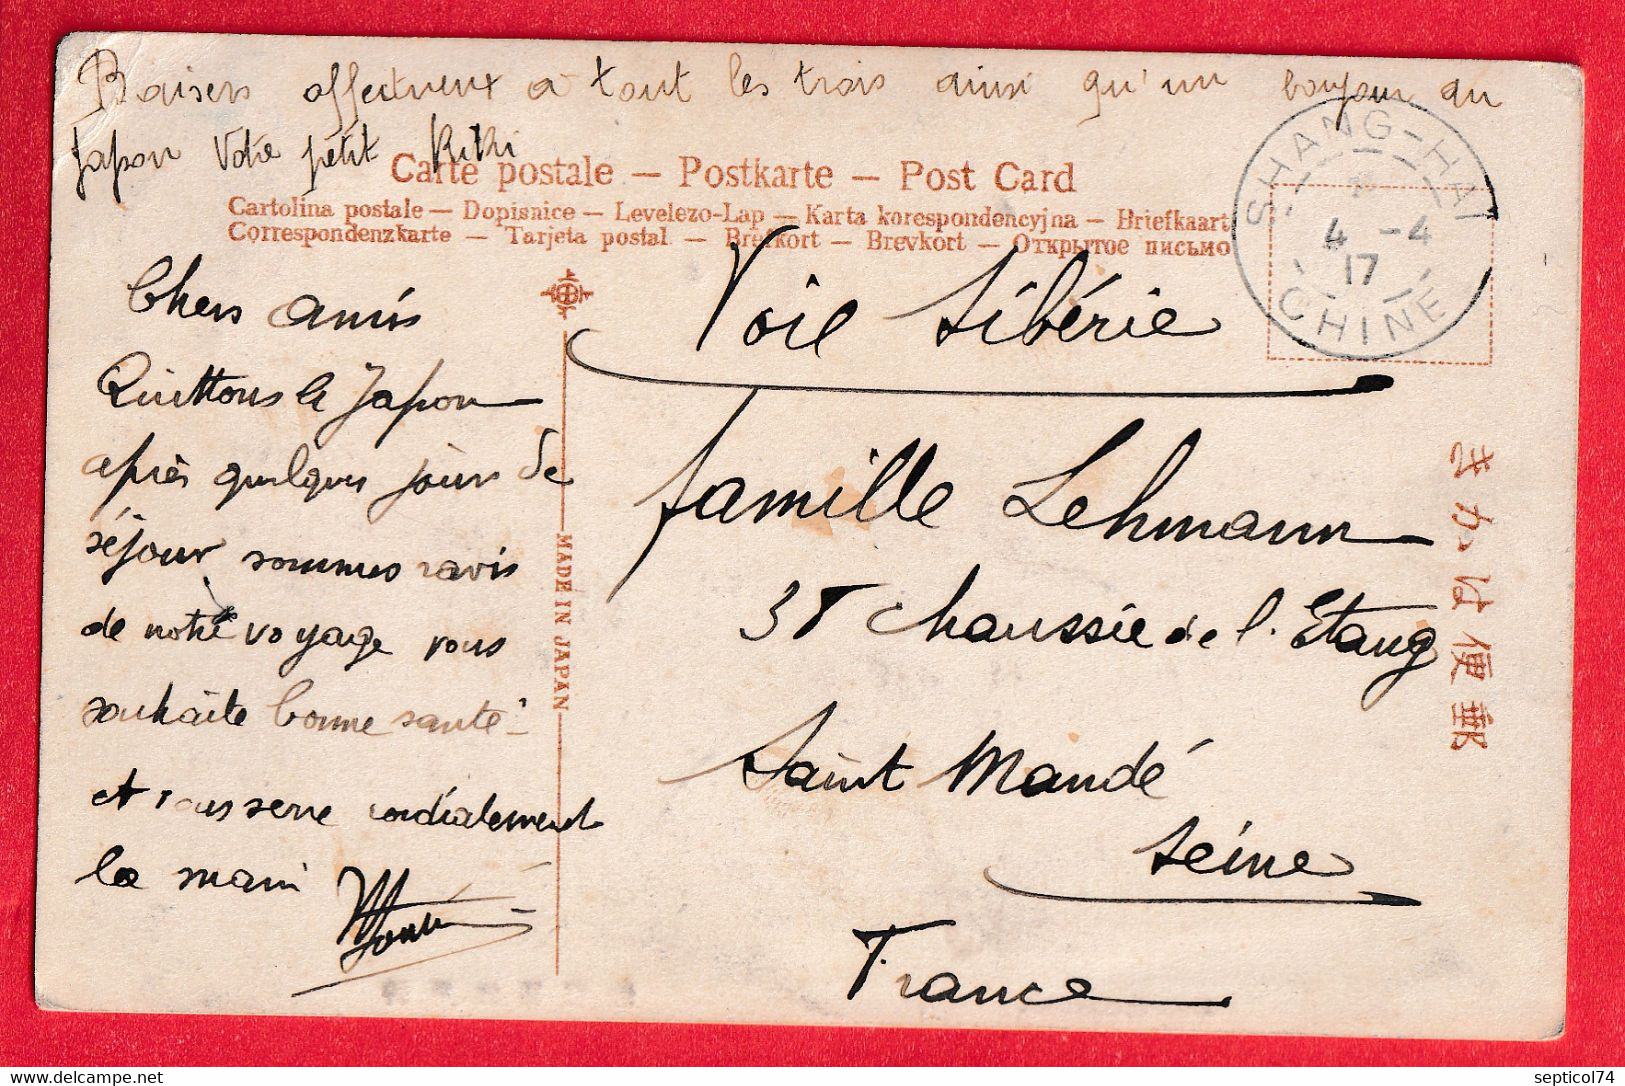 Baisers affectueux a tout les trois ainsi qu'un bonjour au
Japon Votre petit KiKi
Carte postale — Postkarte — Post Card
Cartolina postale — Dopisnice — Levelezo-Lap — Karta korespondencyjna — Briefkaart
Correspondenzkarte — Tarjeta postal — Brefkort — Brevkort — Открытое письмо
SHANG-HAI
4 -4
17
CHINE
Chers amis
Quittons le Japon
après quelques jours de
séjour sommes ravis
de notre voyage vous
souhaite bonne santé
et vous serre cordialement
la main
MADE IN JAPAN
Voie Sibérie
famille Lehmann
Chaussée de l'Etang
Saint Mandé
Seine
France
きかは便郵
septicol74